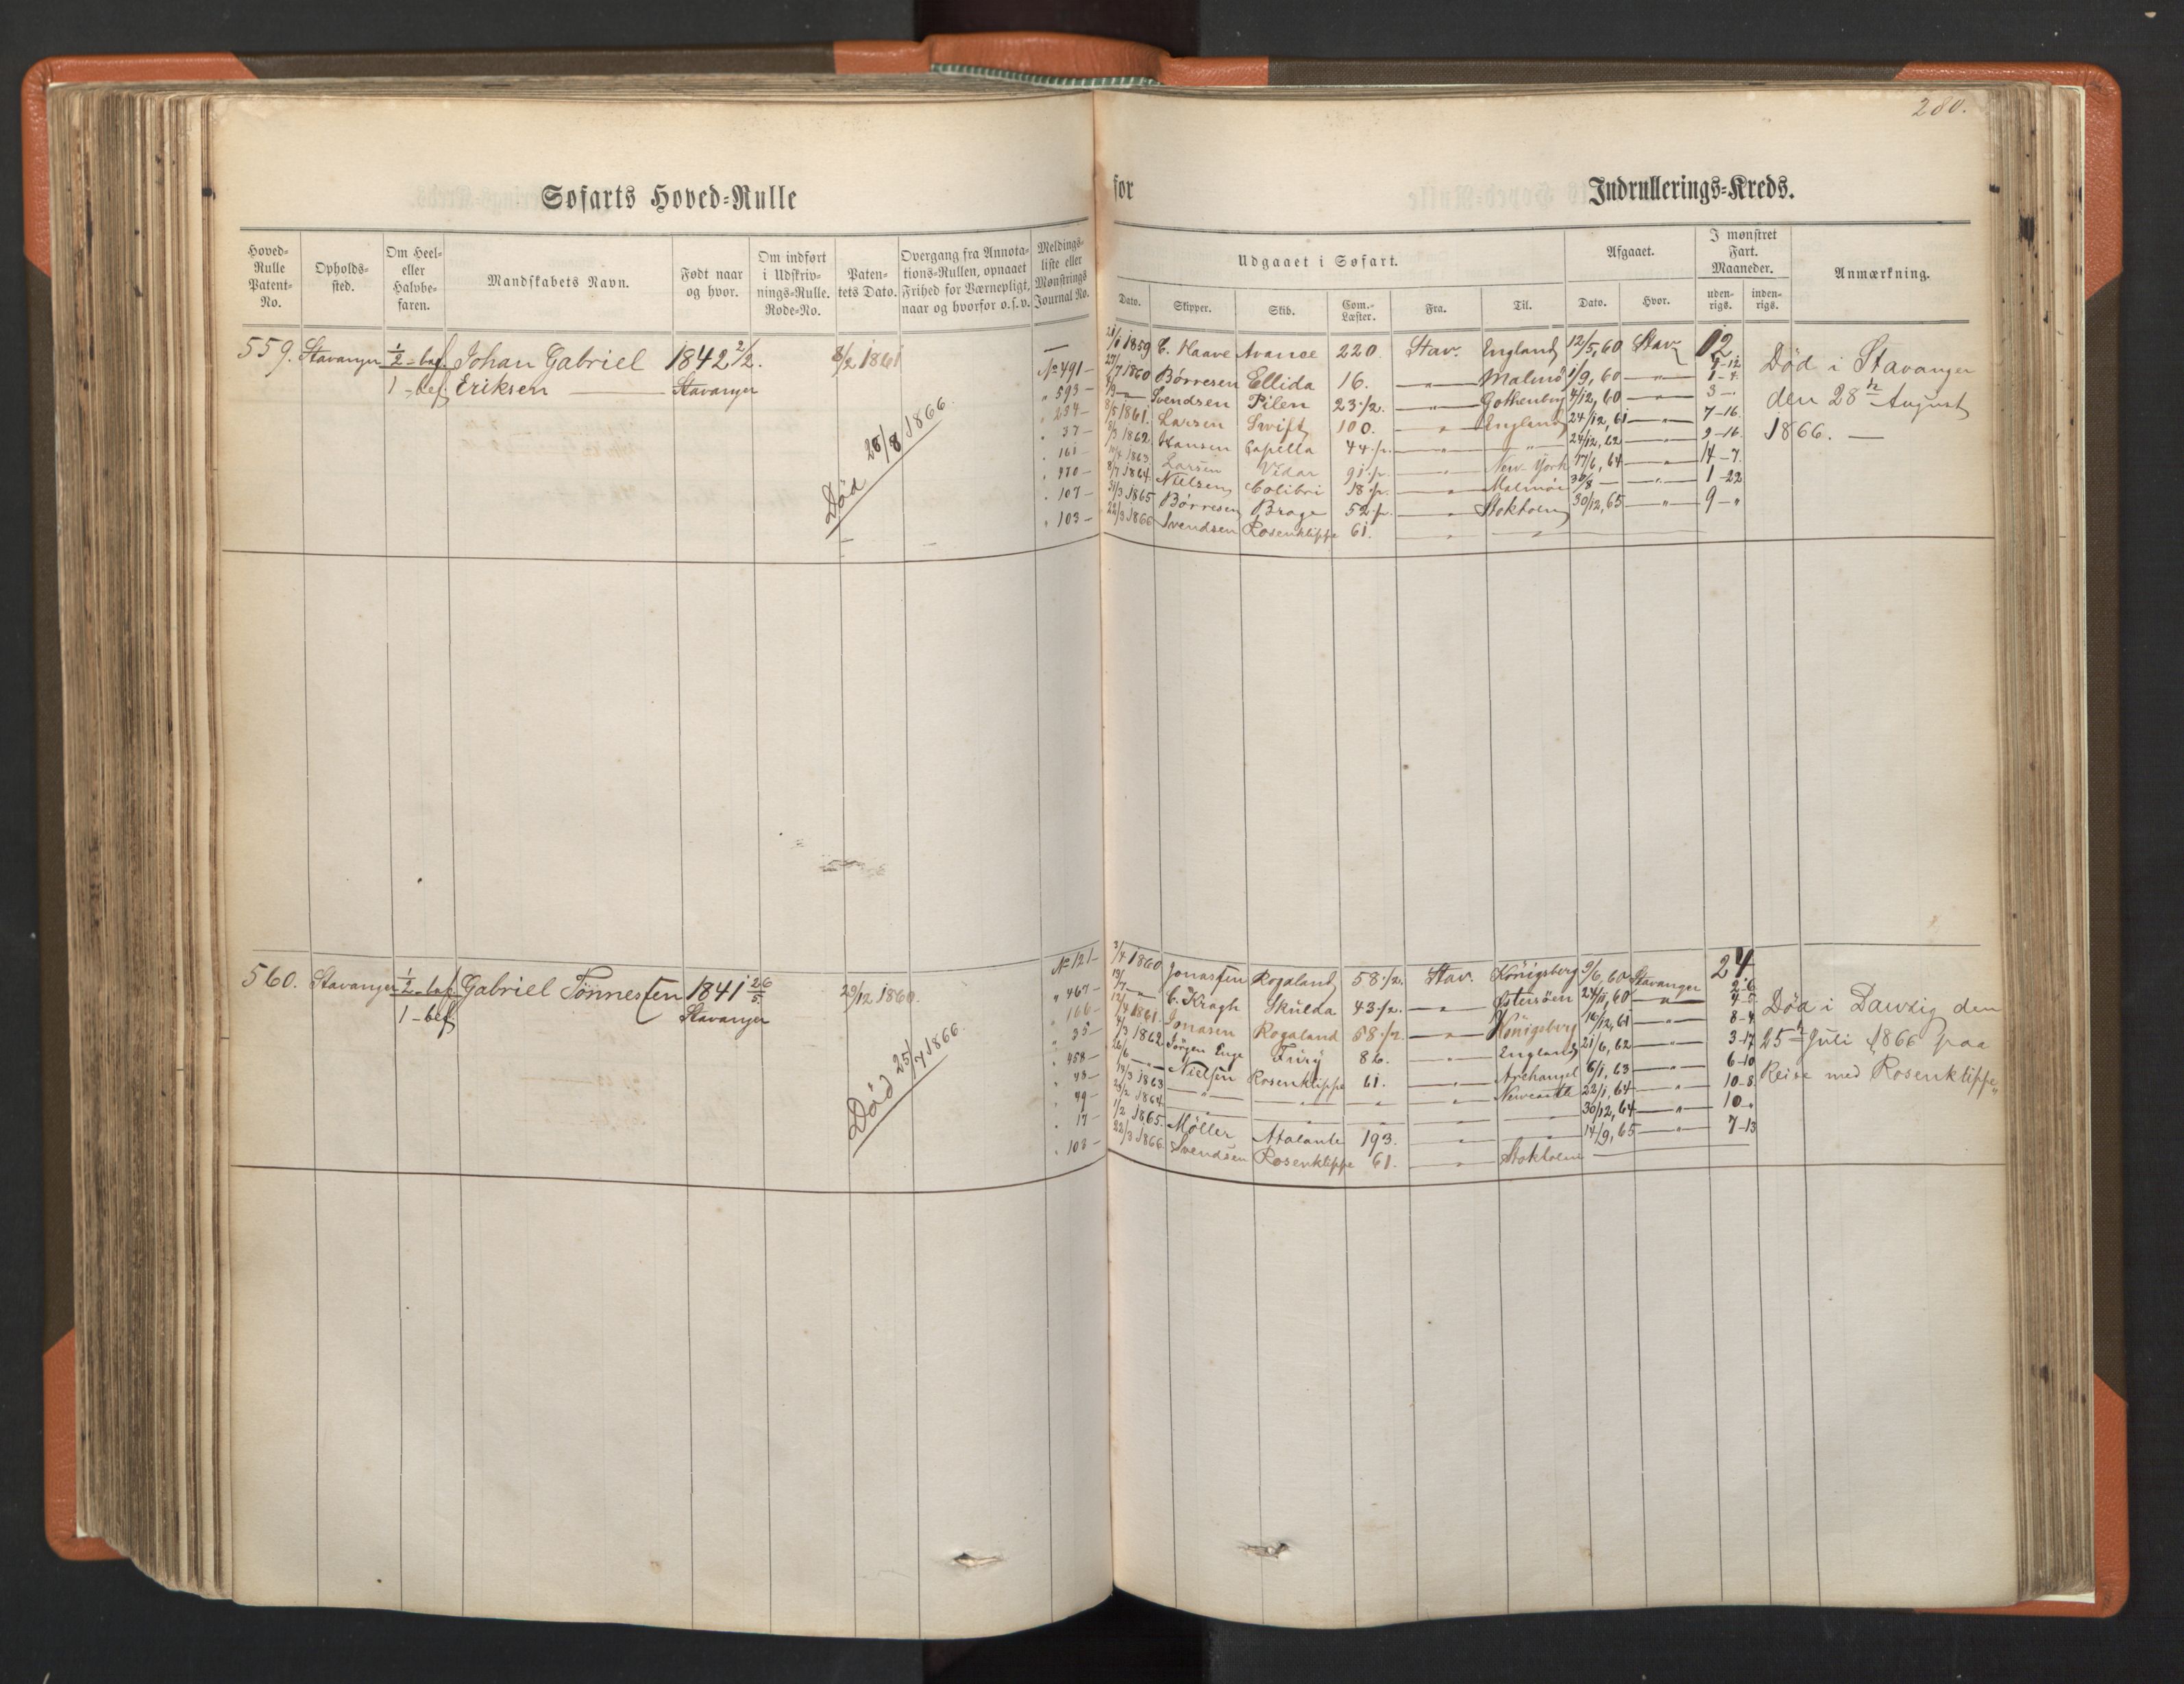 280.
Søfarts Hoved-Rulle for Indrullerings-Kreds.
Hoved-Rulle Patent-No. Opholds-sted. Om Heel- eller Halvbe-faren. Mandskabets Navn. Født naar og hvor. Om indført i Udskriv-nings-Rulle. Rode-No. Paten-tets Dato. Overgang fra Annota-tions-Rullen, opnaaet Frihed for Værnepligt, naar og hvorfor o.s.v. Meldings-liste eller Mønstrings Journal No.
Udgaaet i Søfart. Afgaaet. I mønstret Fart. Maaneder. Anmærkning.
Dato. Skipper. Skib. Com.-Læster. Fra. Til. Dato. Hvor. uden-rigs. inden-rigs.
559. Stavanger 1/2 - bef. Johan Gabriel 1842 2/2. 8/2 1861
1 - bef Eriksen Stavanger
Død 28/8 1866.
— 1859 C. Haave 220. Stav. England 12/5, 60 Stav 12
No 491 — 27/7 1860 Børresen Ellida 16. — " — Malmö 1/9, 60 — " — 1 - 4.
" 593 — Svendsen Pilen 23 1/2. — " — Gothenborg 4/12, 60 — " — 3 —
" 234 — 8/5 1861. Larsen Swift 100. — " — England 24/12, 61 — " — 7 - 16.
" 37 — 8/3 1862. Hansen Capella 44 1/2. — " — — " — 24/12, 62 — " — 9 - 16.
" 161 — 1863. Larsen Vidar 91 1/2. — " — New-York 17/6, 64 — " — 14 - 7.
" 470 — 8/7 1864. Nielsen Colibri 18 1/2. — " — Malmöe 30/8 — — " — 1 - 22
" 107 — 31/3 1865 Børresen Brage 52 1/2. — " — Stokholm 30/12, 65 — " — 9 - "
" 103 — 22/3 1866 Svendsen Rosenklippe 61. — " — — " —
Død i Stavanger
den 28de August
1866. —
560. Stavanger 1/2 - bef. Gabriel Tønnessen 1841 26/5. 29/12 1860.
1 - bef Stavanger
Død 25/7 1866.
No 121 — 3/4 1860 Jonassen Rogaland 58 1/2. Stav. Königsberg 9/6, 60 Stavanger 24
" 467 — 19/7 — C. Kragh Skulda 43 1/2. — " — Østersöen 24/11, 60 — " —
" 166 — 12/4 1861. Jonasen Rogaland 58 1/2. — " — Königsberg 16/12, 61 — " — 8 - 4
" 35 — 4/3 1862 Jörgen Enge Fury 82. — " — England 21/6, 62 — " — 3 - 17
" 458 — 26/6 — " — Nielsen Rosenklippe 61. — " — Archangel 6/1, 63 — " — 6 - 10
" 78 — 19/3 1863 — " — — " — — " — — " — Newcastle 23/1, 64 — " — 10 - 8
" 79 — 24/2 1864. — " — 30/12, 64 — " — 10 - "
" 17 — 1/2 1865. Møller Atalante 193. — " — 14/9, 65 — " — 7 - 13
" 103 — 22/3 1866 Svendsen Rosenklippe 61. — " — Stokholm —
Død i Danzig den
25de Juli 1866 paa
Reise med Rosenklippe"